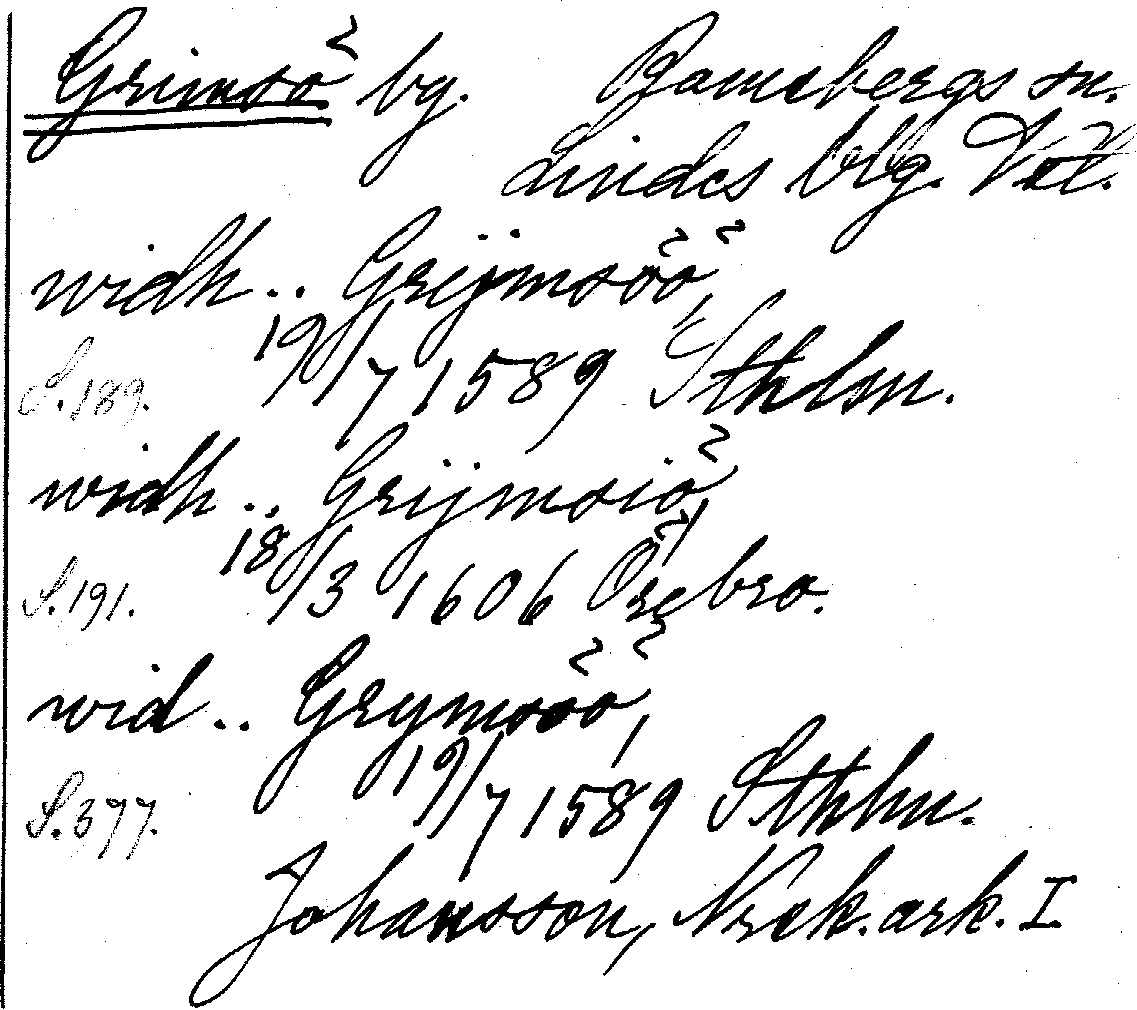 Grimsö by. Ramsbergs sn.
Lindes blg. Vstl.
widh .. Grijmsöö,
S. 189. 19/7 1589 Sthlm.
widh .. Grijmsiö,
S. 191. 18/3 1606 Örebro.
wid .. Grymsöö,
S. 377. 19/7 1589 Sthlm.
Johansson, Nrck. ark. I